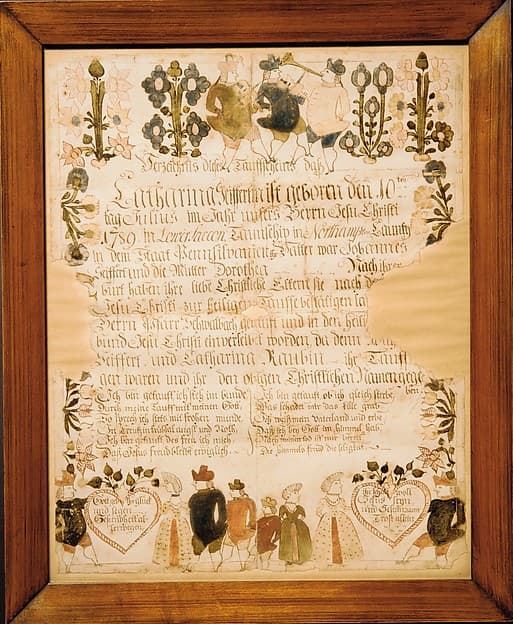 Verzeichnis dises Taufscheins daß
Catharina Seiffertin ist geboren den 10ten
tag Julius im Jahr unsers Herrn Jesu Christi
1789 in Lower Saccon Taunschip in Northampton Caunty
in dem Staat Pennsilvanien Vatter war Johannes
Seiffert und die Mutter Dorothea Nach ihrer
burt haben ihre liebe Christliche Eltern sie nach de
Jesu Christi zur heiligen Tauffe bestätigen la
Herrn Pfarr getaufft und in den heili
bund Jesu Christi einverleibet worden da denn
Seiffert und Catharina Raubin ihr Tauff
gen waren und ihr den obigen Christlichen Namen gege
ben.
Ich bin getaufft ich steh im bunde
Durch meine Tauff mit meinen Gott.
So sprech ich stets mit frohem munde.
in Creutz in trübsal angst und Noth.
Ich bin getaufft des freu ich mich
Daß Jesus freud bleibt ewiglich
Ich bin getaufft ob ich gleich sterbe
Was schadet mir das kühle grab.
Ich weiß mein Vatterland und erbe
Daß ich bey Gott im himmel hab.
Nach meinem tod ist mir bereit
Des himmels freud die seligkeit
und segen